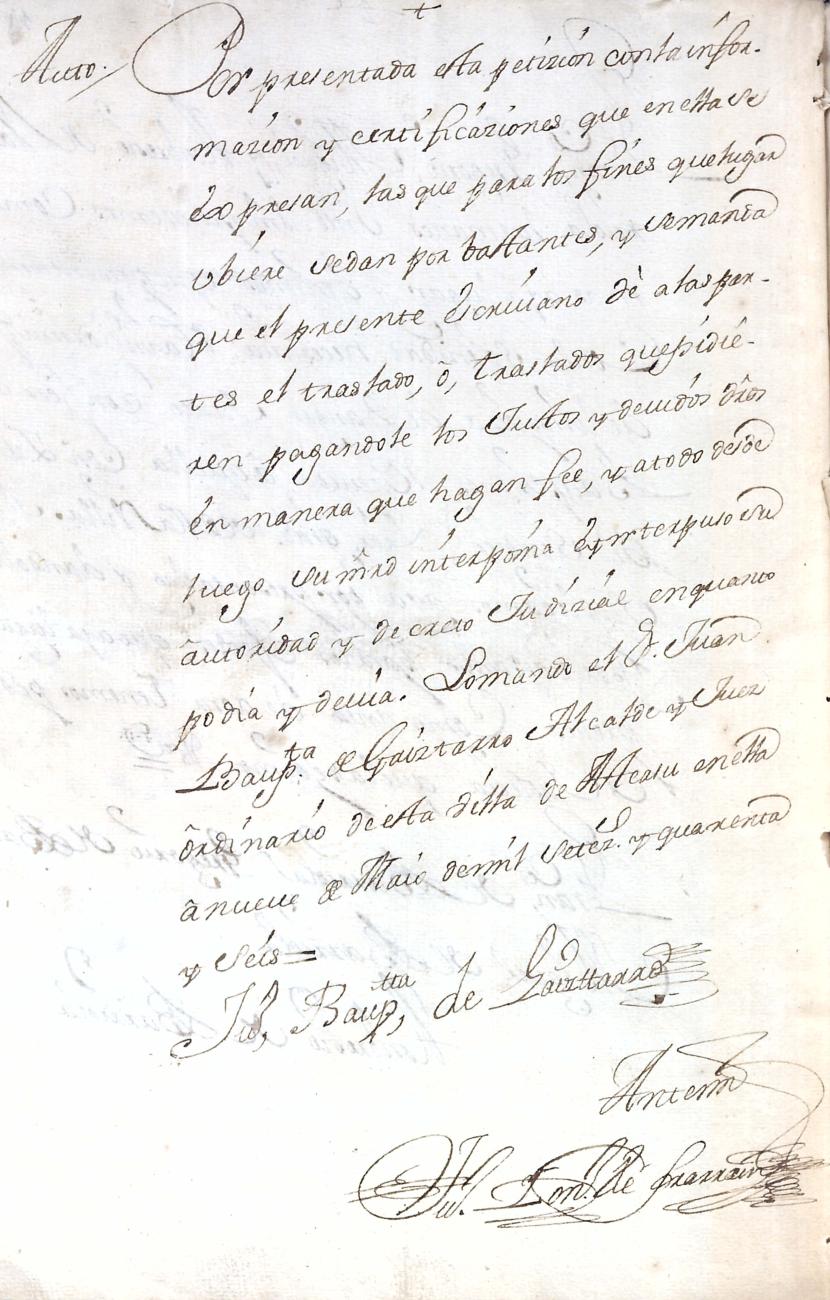 +
Auto / Por presentada esta peticion con la infor-
macion y certificaciones que en ella se
expresan, las que para los fines que lugar
ubiere sedan por bastantes, y se manda
que el presente Escrivano dè a las par-
tes el traslado, ò, traslados que pidie-
ren pagandole los Justos y devidos dros
en manera que hagan fee, y a todo desde
luego su mrd interponia e interpuso su
autoridad y decreto Judicial en quanto
podia y devia. Lo mando el Sr. Juan
Baup.ta de Gaiztarro Alcalde y Juez
ordinario de esta dilla de en ella
a nueve de Maio de mil setez.s y quarenta
y seis =
Ju, Baup,tta de Gaizttarro
Antemi
Ju.